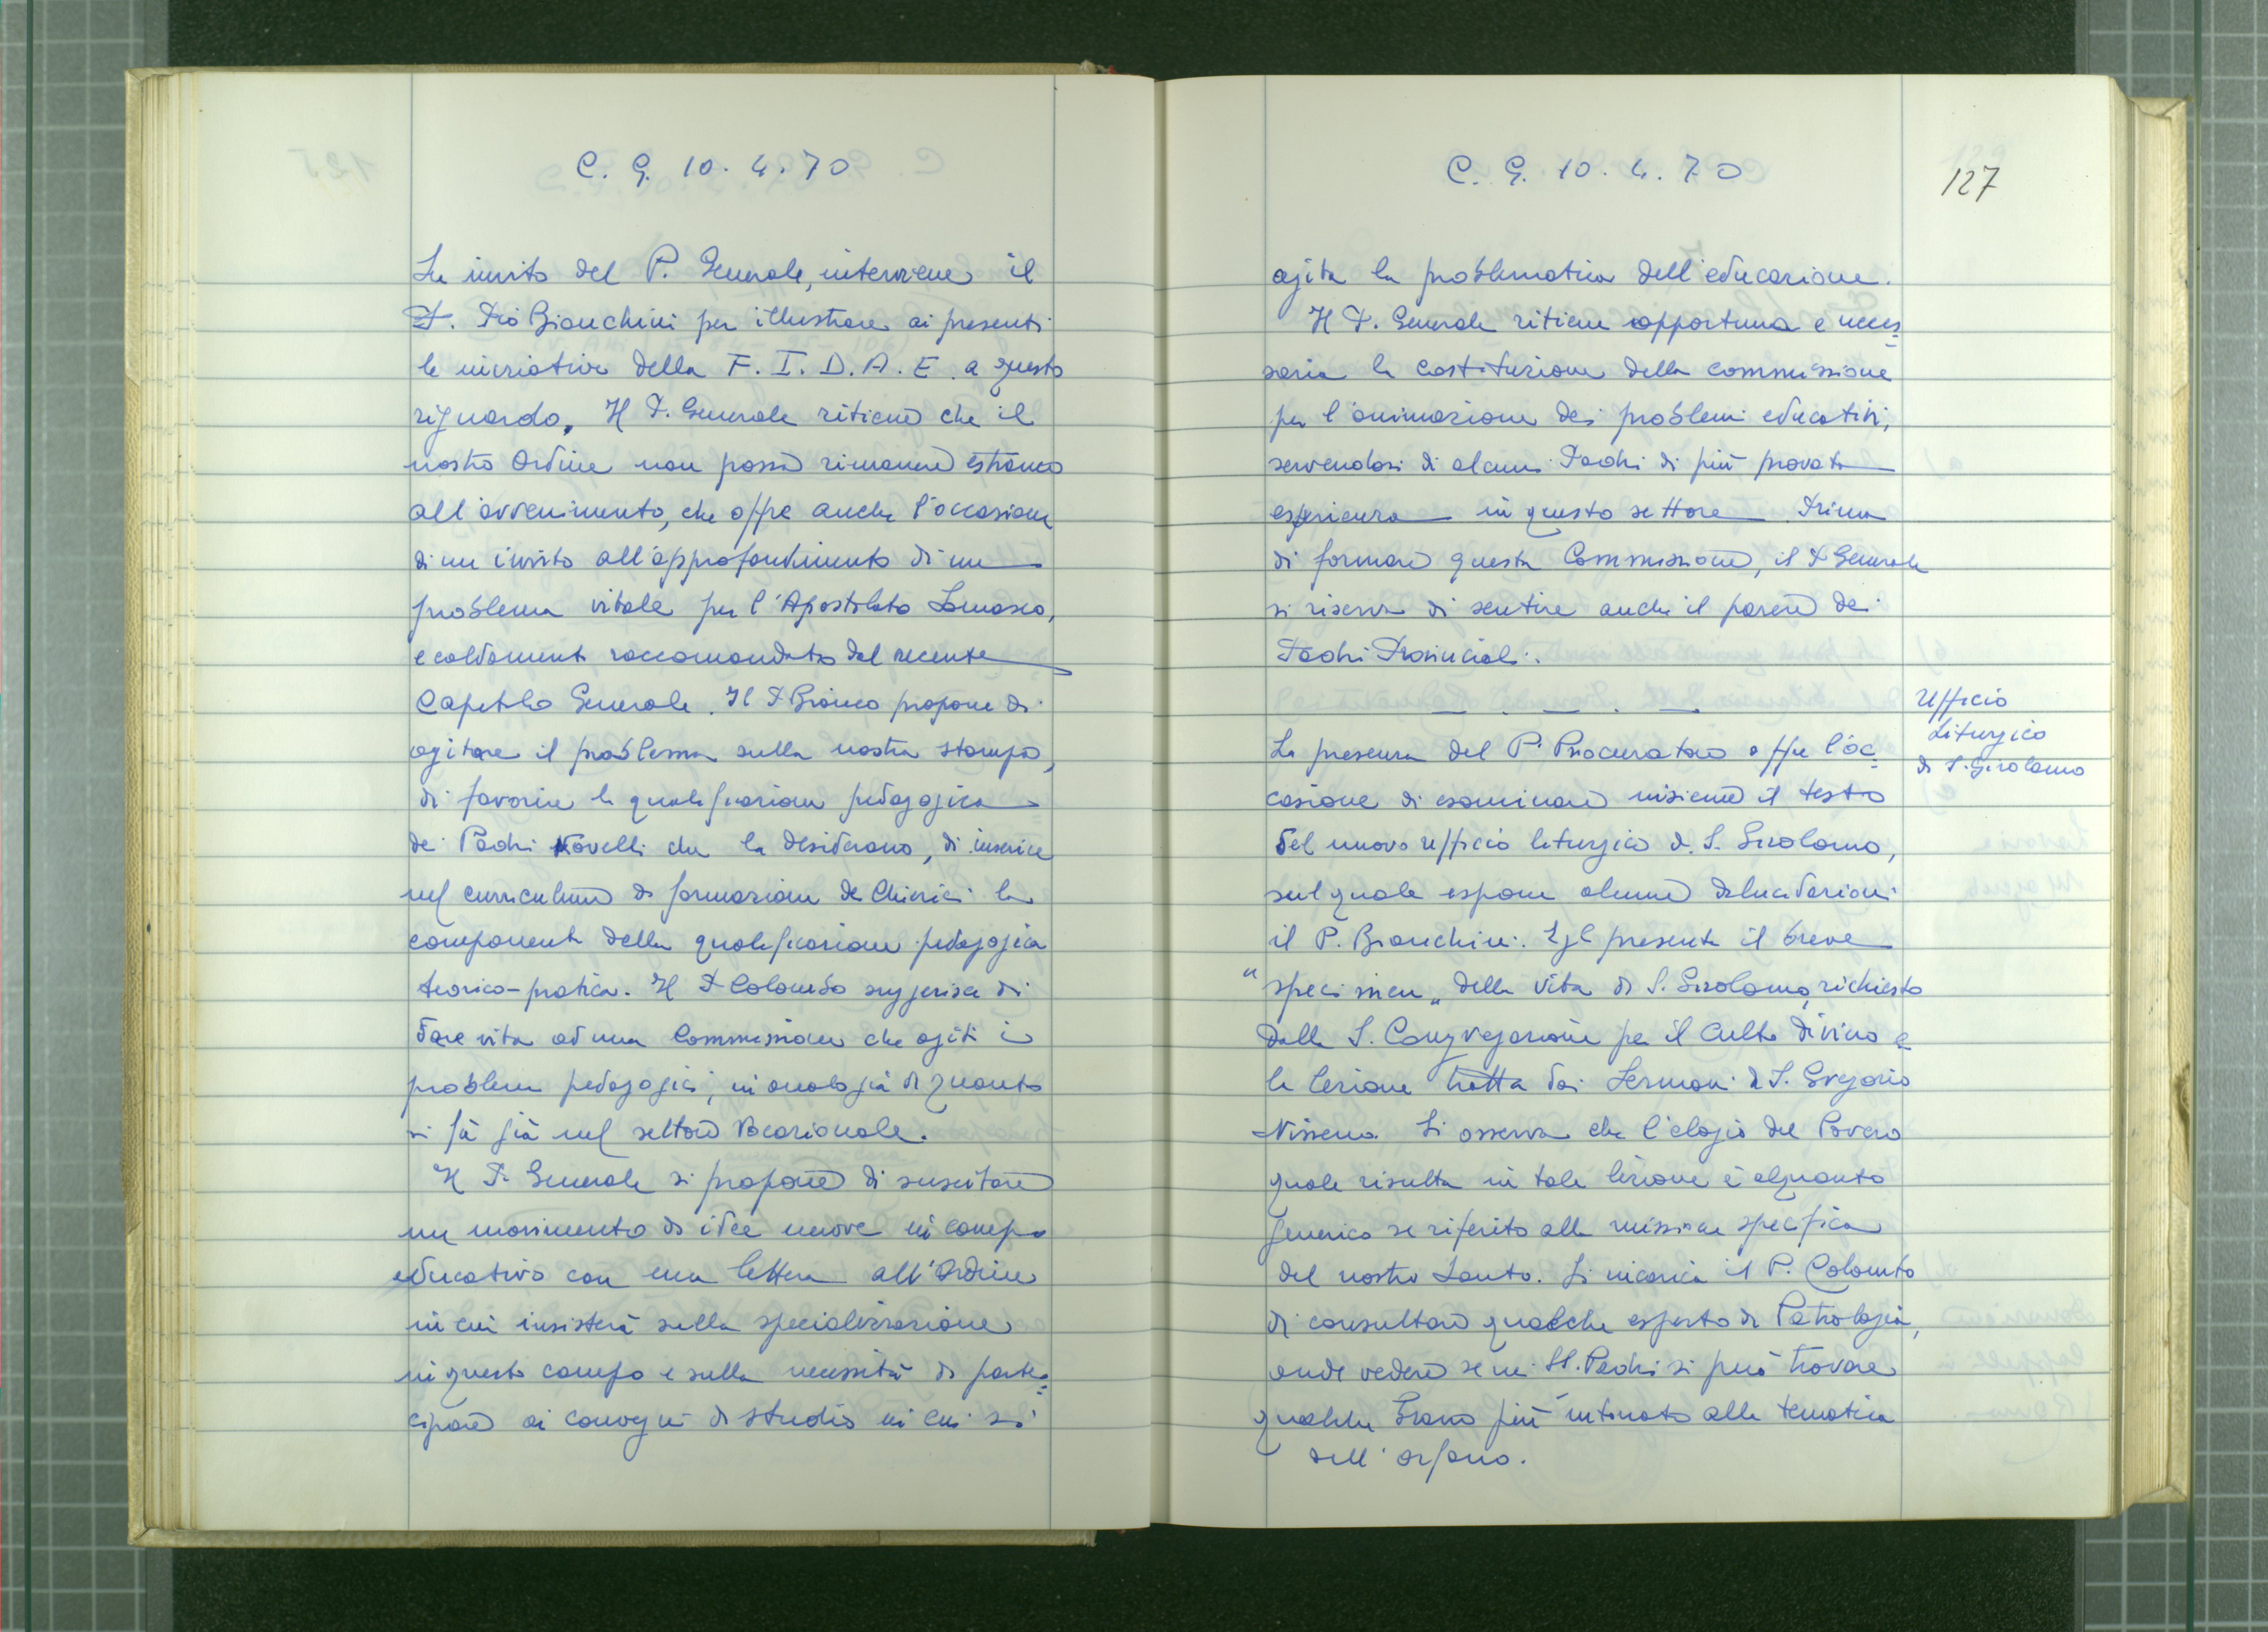 C. G. 10. 4. 70
Su invito del P. Generale, interviene il
P. Pio Bianchini per illustrare ai presenti
le iniziative della F. I. D. A. E. a questo
riguardo. Il P. Generale ritiene che il
nostro Ordine non possa rimanere estraneo
all'avvenimento, che offre anche l'occasione
di un invito all'approfondimento di un
problema vitale per l'Apostolato Somasco,
e caldamente raccomandato dal recente
Capitolo Generale. Il P. Bianco propone di
agitare il problema sulla nostra stampa,
di favorire la qualificazione pedagogica
dei Padri Novelli che la desiderano, di inserire
nel curriculum di formazione dei Chierici la
componente della qualificazione pedagogica
teorico-pratica. Il P. Colombo suggerisce di
dare vita ad una Commissione che agiti i
problemi pedagogici, in analogia di quanto
si fà già nel settore vocazionale.
Il P. Generale si propone di suscitare
un movimento di idee nuove in campo
educativo con una lettera all'Ordine
in cui insisterà sulla specializzazione
in questo campo e sulla necessità di parte=
cipare ai convegni di studio in cui si
C. G. 10. 4. 70
127
agita la problematica dell'educazione.
Il P. Generale ritiene opportuna e neces=
saria la costituzione della commissione
per l'animazione dei problemi educativi,
servendosi di alcuni Padri di più provata
esperienza in questo settore. Prima
di formare questa Commissione, il P. Generale
si riserva di sentire anche il parere dei
Padri Provinciali.
— . — . —
Ufficio
Liturgico
di S. Girolamo
La presenza del P. Procuratore offre l'oc=
casione di esaminare insieme il testo
del nuovo ufficio liturgico di S. Girolamo,
sul quale espone alcune delucidazioni
il P. Bianchini. Egli presenta il breve
"specimen" della vita di S. Girolamo, richiesto
dalla S. Congregazione per il Culto Divino e
la lezione tratta dai Sermoni di S. Gregorio
Nisseno. Si osserva che l'elogio del Povero
quale risulta in tale lezione è alquanto
generico se riferito alla missione specifica
del nostro Santo. Si incarica il P. Colombo
di consultare qualche esperto di Patrologia,
onde vedere se nei SS. Padri si può trovare
qualche brano più intonato alla tematica
dell'orfano.